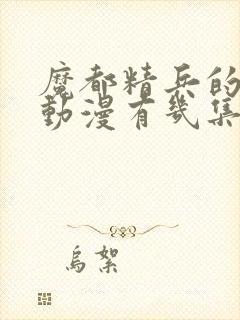 魔都精兵的
動漫有幾集
烏絮